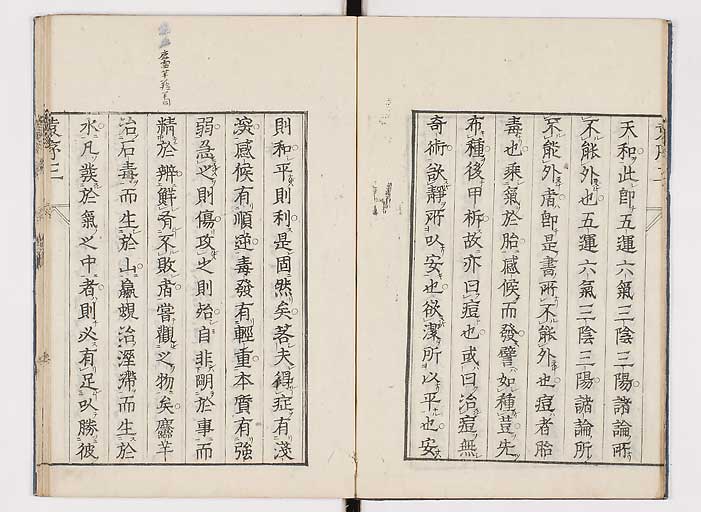 天和此即五運六氣三陰三陽諸論所
不能外也五運六氣三陰三陽諸論所
不能外者即是書所不能外也痘者胎
毒也乘氣於胎感候而發譬如種荳先
布種後甲柝故亦曰痘也或曰治痘無
奇術欲靜所以安也欲潔所以平也安
則和平則利是固然矣若夫得症有淺
深感候有順逆毒發有輕重本質有強
弱急之則傷攻之則殆自非明於事而
精於辨鮮有不敗者嘗觀之物矣麢羊
治石毒而生於山鸁蜆治溼滯而生於
水凡發於氣之中者則必有足以勝彼